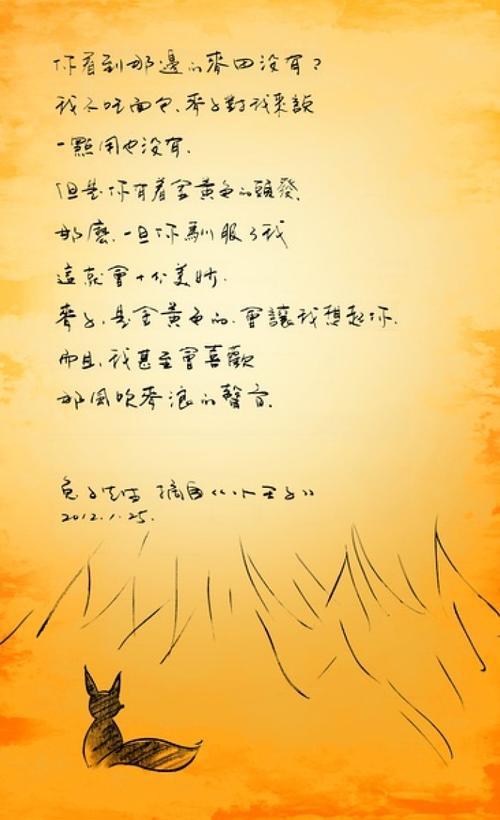 你看到那邊的麥田沒有？
我不吃面包，麥子對我來說
一點用也沒有．
但是你有着金黃色的頭發，
那麼，一旦你馴服了我
這就會十分美妙．
麥子，是金黃色的，會讓我想起你．
而且，我甚至會喜歡
那風吹麥浪的聲音．
兔子先生 摘自《小王子》
2012.1.25.